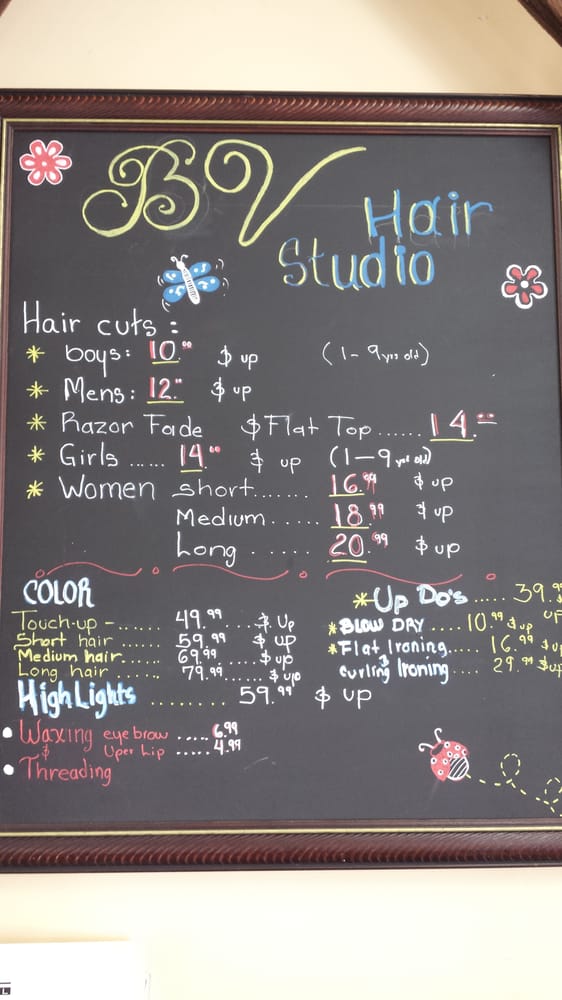 BV Hair
Studio
Hair cuts :
* boys: 10.00 $ up (1-9 yrs old)
* Mens: 12." $ up
* Razor Fade $ Flat Top ...... 14.00
* Girls ...... 14.00 $ up (1-9 yrs old)
* Women short....... 16.99 $ up
Medium..... 18.99 $ up
Long ...... 20.99 $ up
COLOR
Touch-up -...... 49.99....$ Up
Short hair ...... 59.99 $ up
Medium hair...... 69.99.....$ up
Long hair ...... 79.99......$ up
HighLights ......... 59.99 $ up
* Up Do's ..... 39.99 up
* BLOW DRY .... 10.99 $ up
* Flat Ironing..... 16.99 $ up
$ curling Ironing .... 29.99 $ up
• Waxing eye brow ..... 6.99
$ Uper Lip ..... 4.99
• Threading